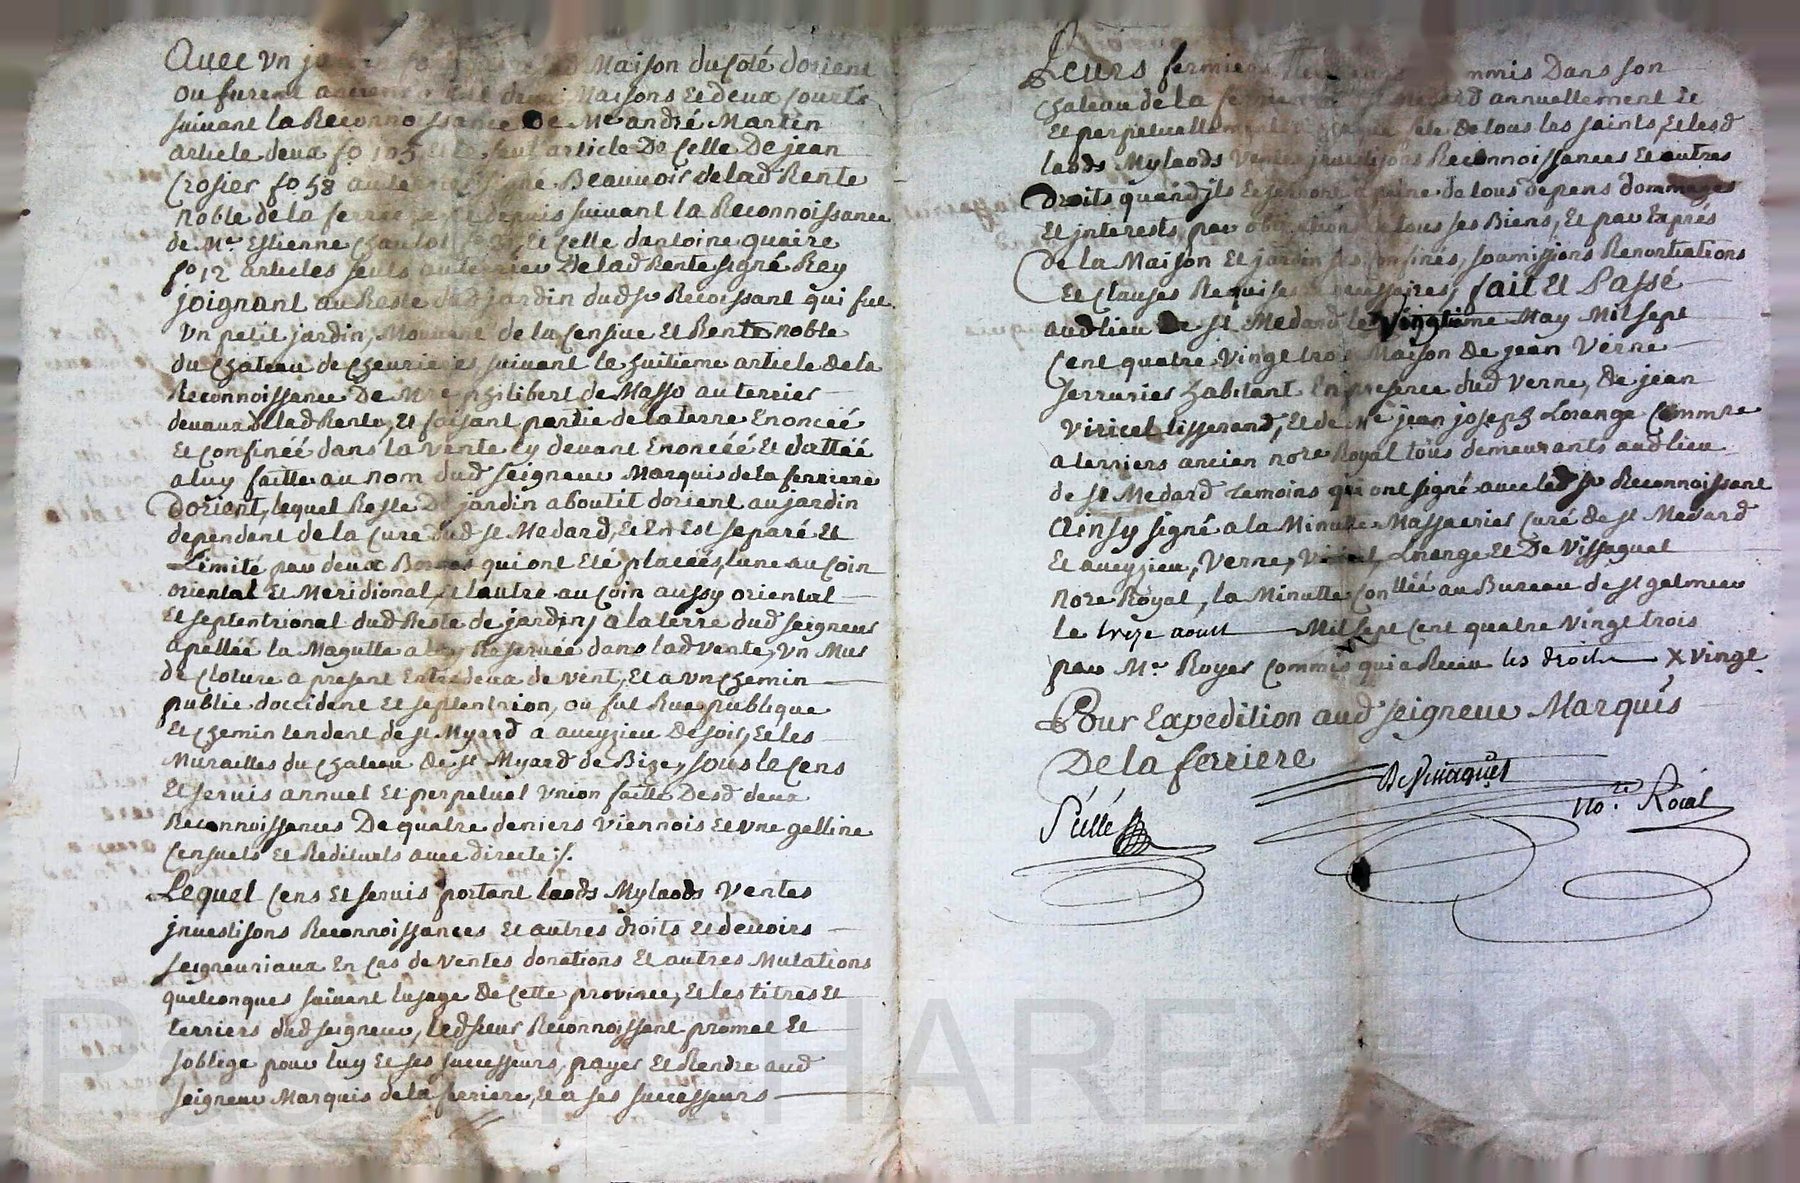 Avec un Maison du Coté dorient
ou furent Maisons et deux Courts
suivant la Reconnoissance de Me andré Martin
article deux fo 105 seul article De Celle De jean
Crosier fo 58 signé Beauvoir delad Rente
noble de la ferriere, et depuis suivant la Reconnoissance
de Mr Estienne et Celle dantoine quaire
fo 12 articles seuls au terrier Delad Rente signé Rey
joignant au Reste dud jardin dud sr Recoissant qui fut
un petit jardin, Mouvant de la Censive et Rente noble
du Chateau de Chevrieres suivant le huitieme article de la
Reconnoissance De Mre philibert de Masso au terrier
devaux delad Rente, et faisant partie de la terre Enoncéé
et Confinéé dans la vente Cy devant Enoncéé et dattéé
a luy faitte au nom dud seigneur Marquis de la ferriere
Dorient, lequel Reste De jardin aboutit dorient au jardin
dependent de la Cure dud st Medard, et En Est separé et
Limité par deux Bornes qui ont Eté placéés, lune au Coin
oriental et Meridional, et lautre au Coin aussy oriental
et septentrional dud Reste de jardin, a la terre dud seigneur
apelléé la Magutte a luy Reservéé dans lad vente, un Mur
de Cloture a present Entredeux de vent, et a un Chemin
public doccident et septentrion, ou fut Rue publique
et Chemin tendent de st Myard a aveyzieu De soir, et les
Murailles du Chateau de st Myard de Bize, sous le Cens
et servis annuel et perpetuel union faitte Desd deux
Reconnoissances De quatre deniers viennois et une gelline
Censuels et Redituels avec directe :/.
Lequel Cens et servis portant laods Mylaods ventes
jnvestisons Reconnoissances et autres droits et devoirs
seigneuriaux en Cas de ventes donations et autres Mutations
quelconques suivant lusage de Cette province, et les titres et
terriers dud seigneur, led sieur Reconnoissant promet et
soblige pour luy et ses successeurs, payer et Rendre aud
seigneur Marquis de la ferriere, et a ses successeurs
Leurs fermiers Commis Dans son
Chateau de la annuellement et
et perpetuellement fete de tous les saints, et lesd
laods Mylaods ventes jnvestisons Reconnoissances et autres
Droits quand jls a peine de tous depens dommages
et jnterests, par obligation de tous ses Biens, et par Exprés
de la Maison et jardin soumissions Renontiations
et Clauses Requises necessaires, fait et Passé
aud lieu de st Medard le vingtieme May Mil sept
Cent quatre vingt trois Maison de jean verne
serrurier habitant En presence dud verne, de jean
viricel tisserand, et de Me jean joseph Lorange Commre
a terriers ancien nore Royal tous demeurants aud lieu
de st Medard temoins qui ont signé avec led sr Reconnoissant
Ainsy signé a la Minutte Massacrier Curé de st Medard
et aveyzieu, verne, viricel, Lorange et De vissaguet
nore Royal, la Minutte Contléé au Bureau de st galmier
le treze aoust Mil sept Cent quatre vingt trois
par Mr Royer Commis qui a Receu les droits X vingt
Pour Expedition aud seigneur Marquis
De la ferriere
De vissaguet
no.re Roial
Scéllé
PasqCHAREYRON